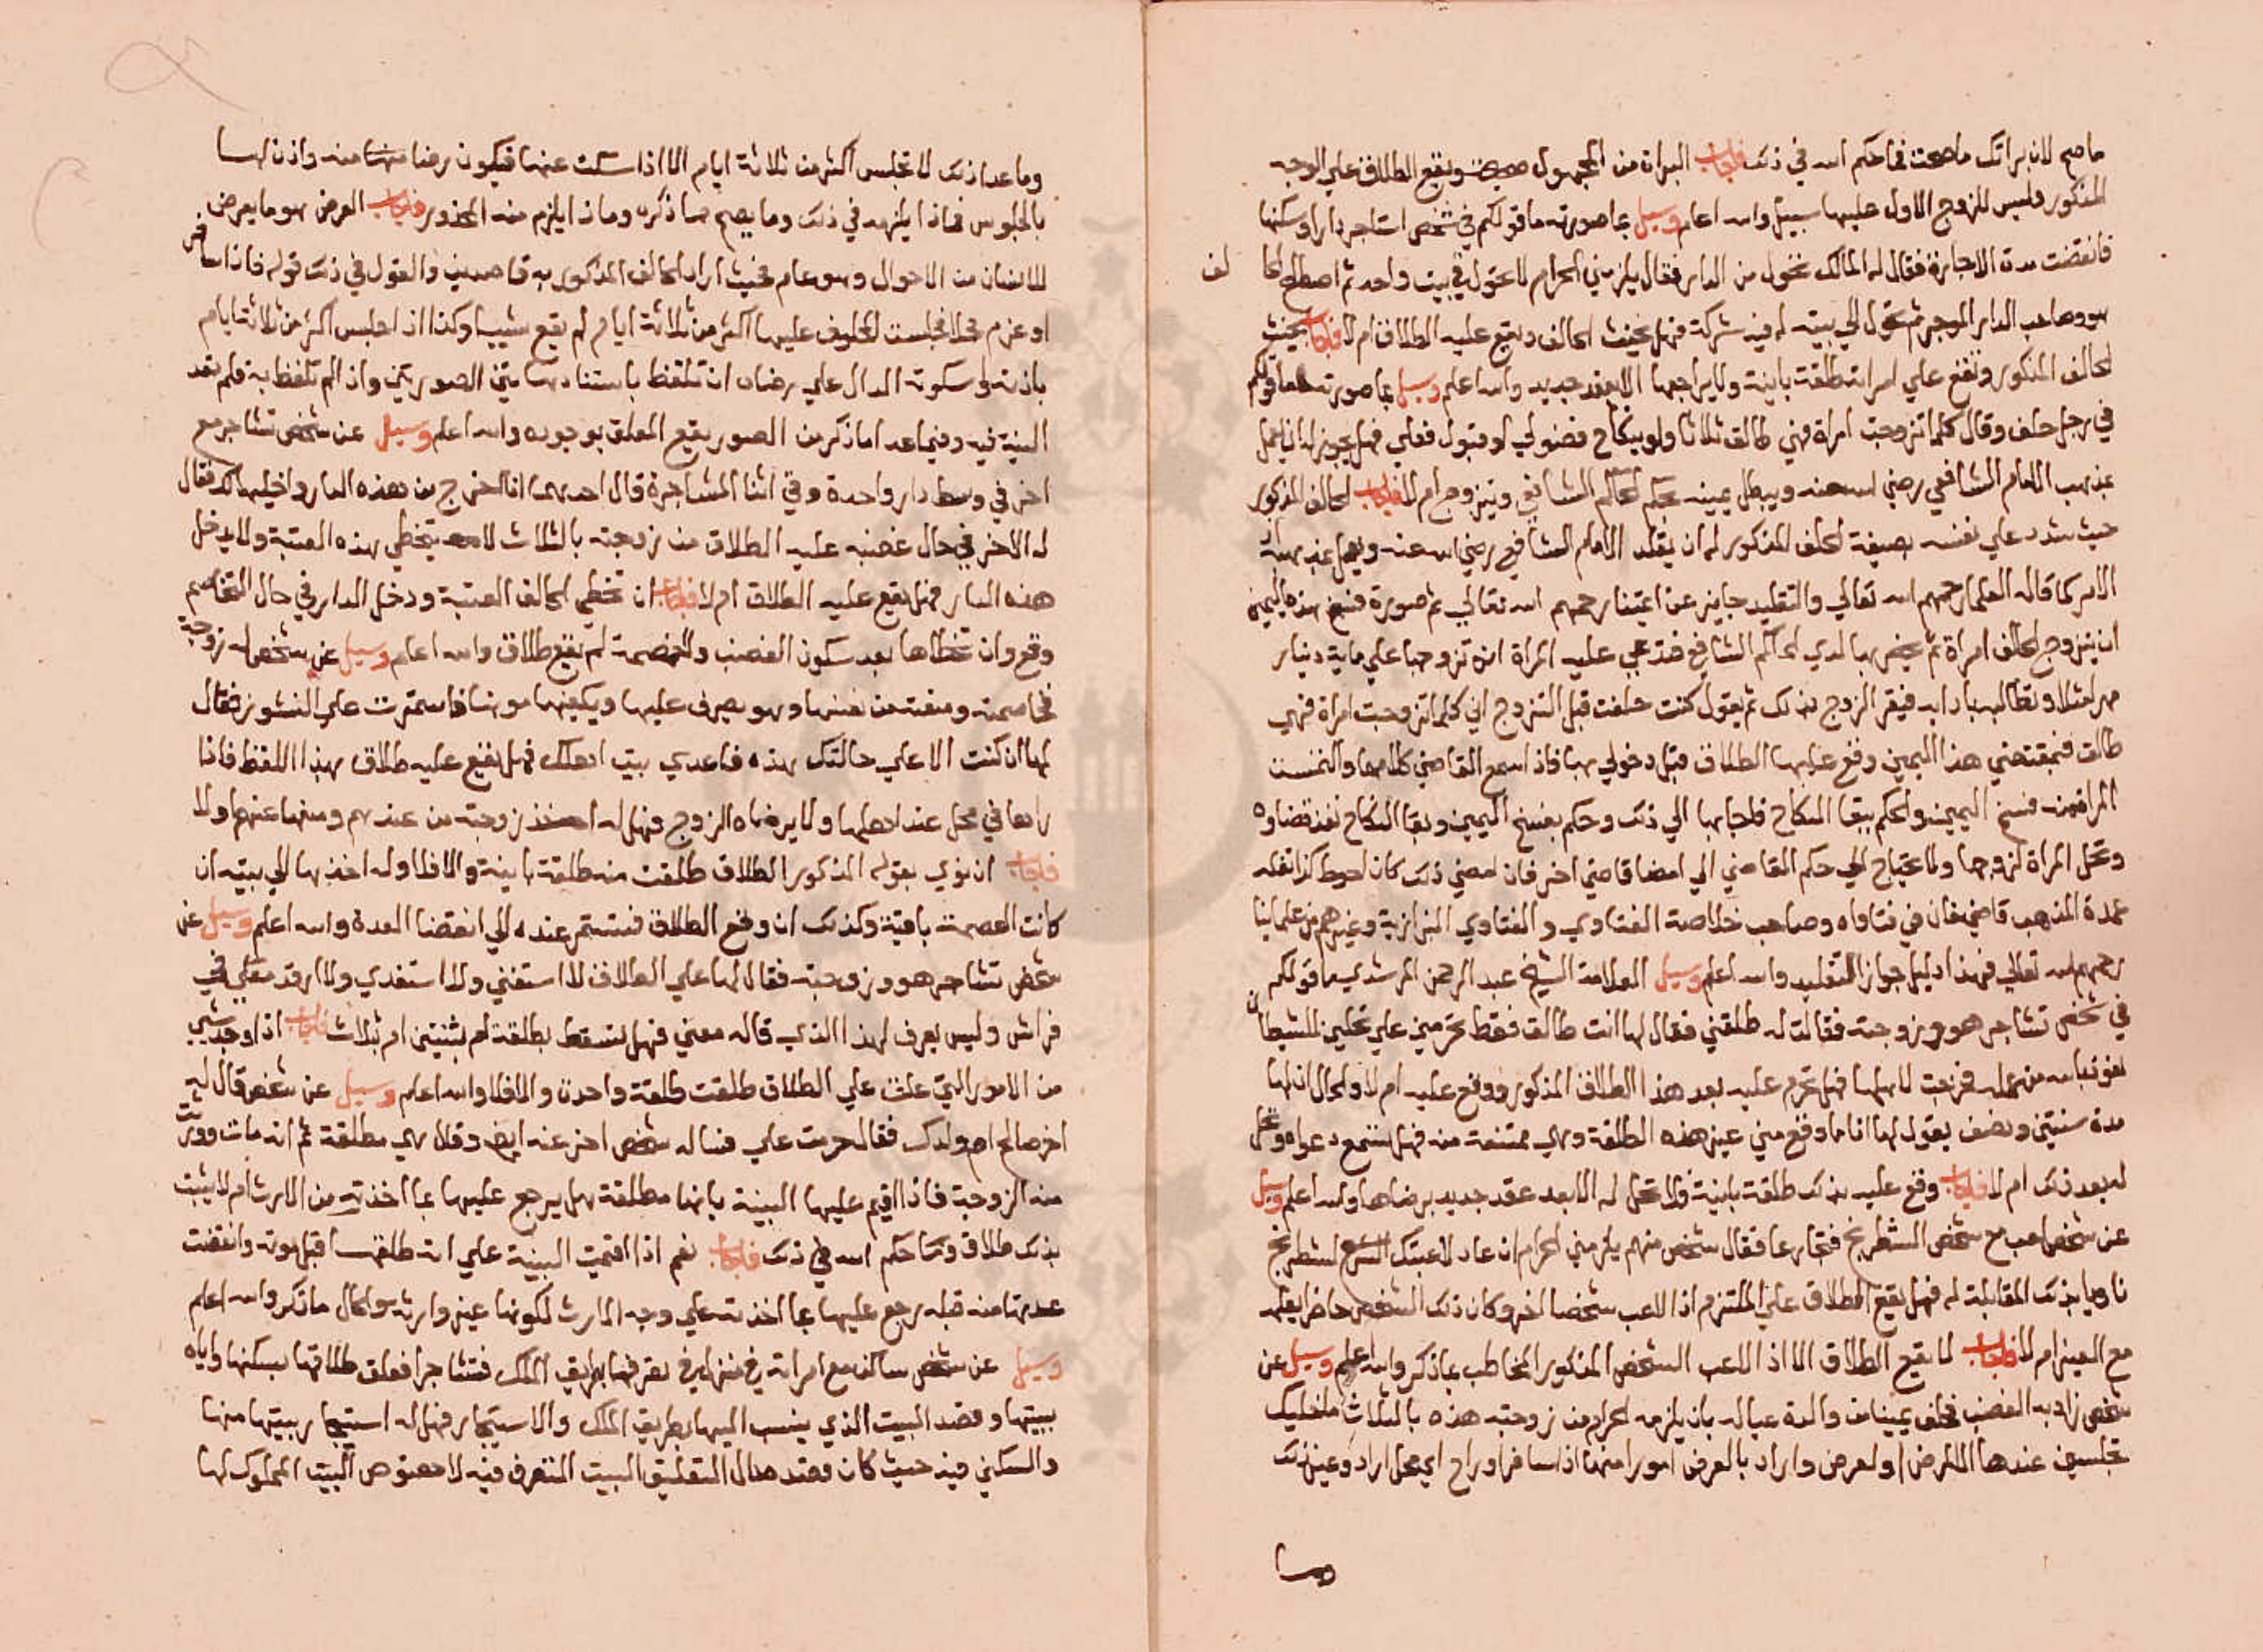 ما صح لان براتك ما صحت فما حكم الله في ذلك فاجاب البراة من المجهول صحيحة ويقع الطلاق علي الوجه
المذكور وليس للزوج الاول عليها سبيل والله اعلم وسيل بما صورته ما قولكم في شخص استاجر دارا وسكنها
فانقضت مدة الاجارة فقال له المالك تحول من الدار فقال يلزمني الحرام لا نحول في بيت واحد ثم اصطلحا
هو وصاحب الدار الموجر ثم تحول الي بيته له فيه شركة فهل يحنث الحالف ويقع عليه الطلاق ام لا فاجاب يحنث
الحالف المذكور وتقع علي امراته طلقة باينة ولا يراجعها الا بعقد جديد والله اعلم وسيل بما صورته ما قولكم
في رجل حلف وقال كلما تزوجت امراة فهي طالق ثلاثا ولو بنكاح فضولي او قبول فعلي فهل يجوز له ان يعمل
بمذهب الامام الشافعي رضي الله عنه ويبطل يمينه بحكم الحاكم الشافعي ويتزوج ام لا فاجاب الحالف المذكور
حيث شدد علي نفسه بصيغة الحلف المذكور له ان يقلد الامام الشافعي رضي الله عنه ويعمل بمذهبه
الامر كما قاله العلما رحمهم الله تعالي والتقليد جايز عن ايمتنا رحمهم الله تعالي ثم صورة فسخ هذه اليمين
ان يتزوج الحالف امراة ثم يحضر بها لدي الحاكم الشافعي فتدعي عليه المراة انه تزوجها علي ماية دينار
مهر مثلا وتطالبه باداه فيقر الزوج بذلك ثم يقول كنت حلفت قبل التزوج اني كلما تزوجت امراة فهي
طالق فبمقتضي هذا اليمين وقع عليها الطلاق قبل دخولي بها فاذا سمع القاضي كلامهما والتمست
المراة منه فسخ اليمين والحكم ببقا النكاح فاجابها الي ذلك وحكم بفسخ اليمين وبقا النكاح نفذ قضاوه
وتحل المراة لزوجها ولا يحتاج الي حكم القاضي الي امضا قاضي اخر فان امضي ذلك كان احوط كذا نقله
عمدة المذهب قاضيخان في فتاواه وصاحب خلاصة الفتاوي والفتاوي البزازية وغيرهم من علماينا
رحمهم الله تعالي فهذا دليل جواز التقليد والله اعلم وسيل العلامة الشيخ عبد الرحمن المرشدي بما قولكم
في شخص تشاجر هو وزوجته فقالت له طلقني فقال لها انت طالق فقط تحرمين علي تحلين للشيطان
نعوذ بالله من عمله فخرجت لاهلها فهل تحرم عليه بعد هذا الطلاق المذكور ووقع عليه ام لا والحال ان لها
مدة سنتين ونصف يقول لها انا ما وقع مني غير هذه الطلقة وهي ممتنعة منه فهل تسمع دعواه وتحل
له بعد ذلك ام لا فاجاب وقع عليه بذلك طلقة باينة ولا تحل له الا بعد عقد جديد برضاها والله اعلم وسيل
عن شخص لعب مع شخص الشطرنج فتخارعا فقال شخص منهم يلزمني الحرام ان عاد لاعبتك الشطرنج
ناويا بذلك المقابلة له فهل يقع الطلاق علي الملتزم اذا لاعب شخصا اخر وكان ذلك الشخص حاضرا يعلمه
مع الغير ام لا فاجاب لا يقع الطلاق الا اذا لاعب الشخص المذكور المخاطب بما ذكر والله اعلم وسيل عن
شخص زاد به الغضب فحلف يمينا من والدة عياله بان يلزمه الحرام من زوجته هذه بالثلاث ما خليك
تجلسين عندها الا لمرض او لعرض واراد بالعرض امورا منها اذا سافر او راح اي محل اراد وغير ذلك
وما
وما عدا ذلك لا تجلس اكثر من ثلاثة ايام الا اذا سكت عنها فيكون رضا منه واذن لها
بالجلوس فماذا يلزمه في ذلك وما يصح مما ذكره وماذا يلزم منه المحذور فاجاب العرض هو ما يعرض
للانسان من الاحوال وهو عام فحيث اراد الحالف المذكور به قاصديه والقول في ذلك قوله فاذا سافر
او عزم محلا فجلست المحلوف عليها اكثر من ثلاثة ايام لم يقع شيء وكذا اذا جلس اكثر من ثلاثة ايام
باذنه او سكوته الدال علي رضاه ان تلفظ باستثنا هاتين الصورتين واذا لم تلفظ به فلم تفد
النية فيه وفيما عدا ما ذكر من الصور يقع المعلق بوجوده والله اعلم وسيل عن شخص تشاجر مع
اخر في وسط دار واحدة وفي اثنا المشاجرة قال احدهما انا اخرج من هذه الدار واخليها لك فقال
له الاخر في حال غضبه عليه الطلاق من زوجته بالثلاث لا يتخطي هذه العتبة ولا يدخل
هذه الدار فهل يقع عليه الطلاق ام لا فاجاب ان تخطي الحالف العتبة ودخل الدار في حال التخاصم
وقع وان تخطاها بعد سكون الغضب والخصمة لم يقع طلاق والله اعلم وسيل عن شخص له زوجة
فخاصمته ومنعته من نفسها وهو يصرف عليها ويكفيها مونها فاستمرت علي النشوز فقال
لها ان كنت الا علي حالتك هذه فاعدي بيت اهلك فهل يقع عليه طلاق بهذا اللفظ فاذا
راها في محل عند اهلها ولا يرضاه الزوج فهل له اخذ زوجته من عندهم ومنعها عنهم او لا
فاجاب ان نوي بقوله المذكور الطلاق طلقت منه طلقة باينة والا فلا وله اخذها الي بيته ان
كانت العصمة باقية وكذلك ان وقع الطلاق فتستمر عنده الي انقضا العدة والله اعلم وسيل عن
شخص تشاجر هو وزوجته فقال لها علي الطلاق لا استغني ولا استغدي ولا ارقد معك في
فراش وليس يعرف لهذا الذي قاله معني فهل تسقط بطلقة ام بثنتين ام بثلاث فاجاب اذا وجد شي
من الامور التي علق علي الطلاق طلقت طلقة واحدة والا فلا والله اعلم وسيل عن شخص قال له
اخر صالح ام ولدك فقال حرمت علي فساله شخص اخر عنه ايضا وقال هي مطلقة ثم انه مات وورثت
منه الزوجة فاذا اقيم عليها البينة بانها مطلقة هل يرجع عليها بما اخذته من الارث ام لا يثبت
بذلك طلاق وما حكم الله في ذلك فاجاب نعم اذا اقيمت البينة علي انه طلقها قبل موته وانقضت
عدتها منه قبله رجع عليها بما اخذته علي وجه الارث لكونها غير وارثه والحال ما ذكر والله اعلم
وسيل عن شخص ساكن مع امراته في منزلين في تصرفها بطريق الملك فتشاجرا فعلق طلاقها بسكنها واياه
ببيتها وقصد البيت الذي ينسب اليها بطريق الملك والاستيجار فهل له استيجار بيتها منها
والسكني فيه حيث كان قصده حال التعليق البيت المتصرف فيه لا خصوص البيت المملوك لها